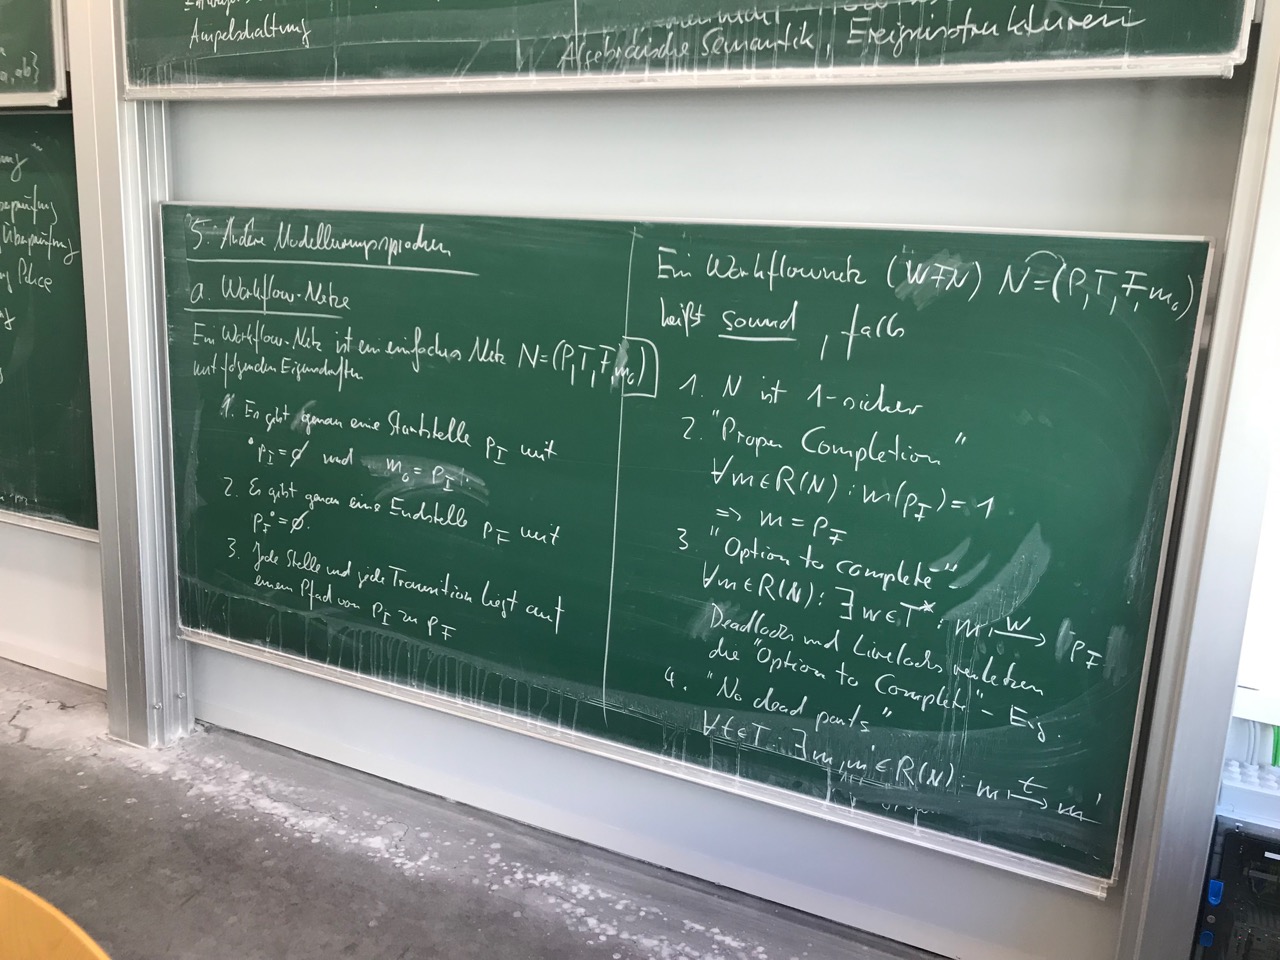 Ampelschaltung
Algebraische Semantik, Ereignisstrukturen
a, ab}
Überprüfung
Police
5. Andere Modellierungssprachen
a. Workflow-Netze
Ein Workflow-Netz ist ein einfaches Netz N=(P,T,F,m₀)
mit folgenden Eigenschaften
1. Es gibt genau eine Startstelle p_I mit
•p_I = ∅ und m₀ = p_I.
2. Es gibt genau eine Endstelle p_F mit
p_F• = ∅.
3. Jede Stelle und jede Transition liegt auf
einem Pfad von p_I zu p_F
Ein Workflownetz (WFN) N=(P,T,F,m₀)
heißt sound, falls
1. N ist 1-sicher
2. "Proper Completion"
∀m∈R(N): m(p_F) = 1
=> m = p_F
3. "Option to complete"
∀m∈R(N): ∃w∈T*: m –w→ p_F
Deadlocks und Livelocks verletzen
die "Option to Complete" - Eig.
4. "No dead parts"
∀t∈T: ∃m,m'∈R(N): m –t→ m'